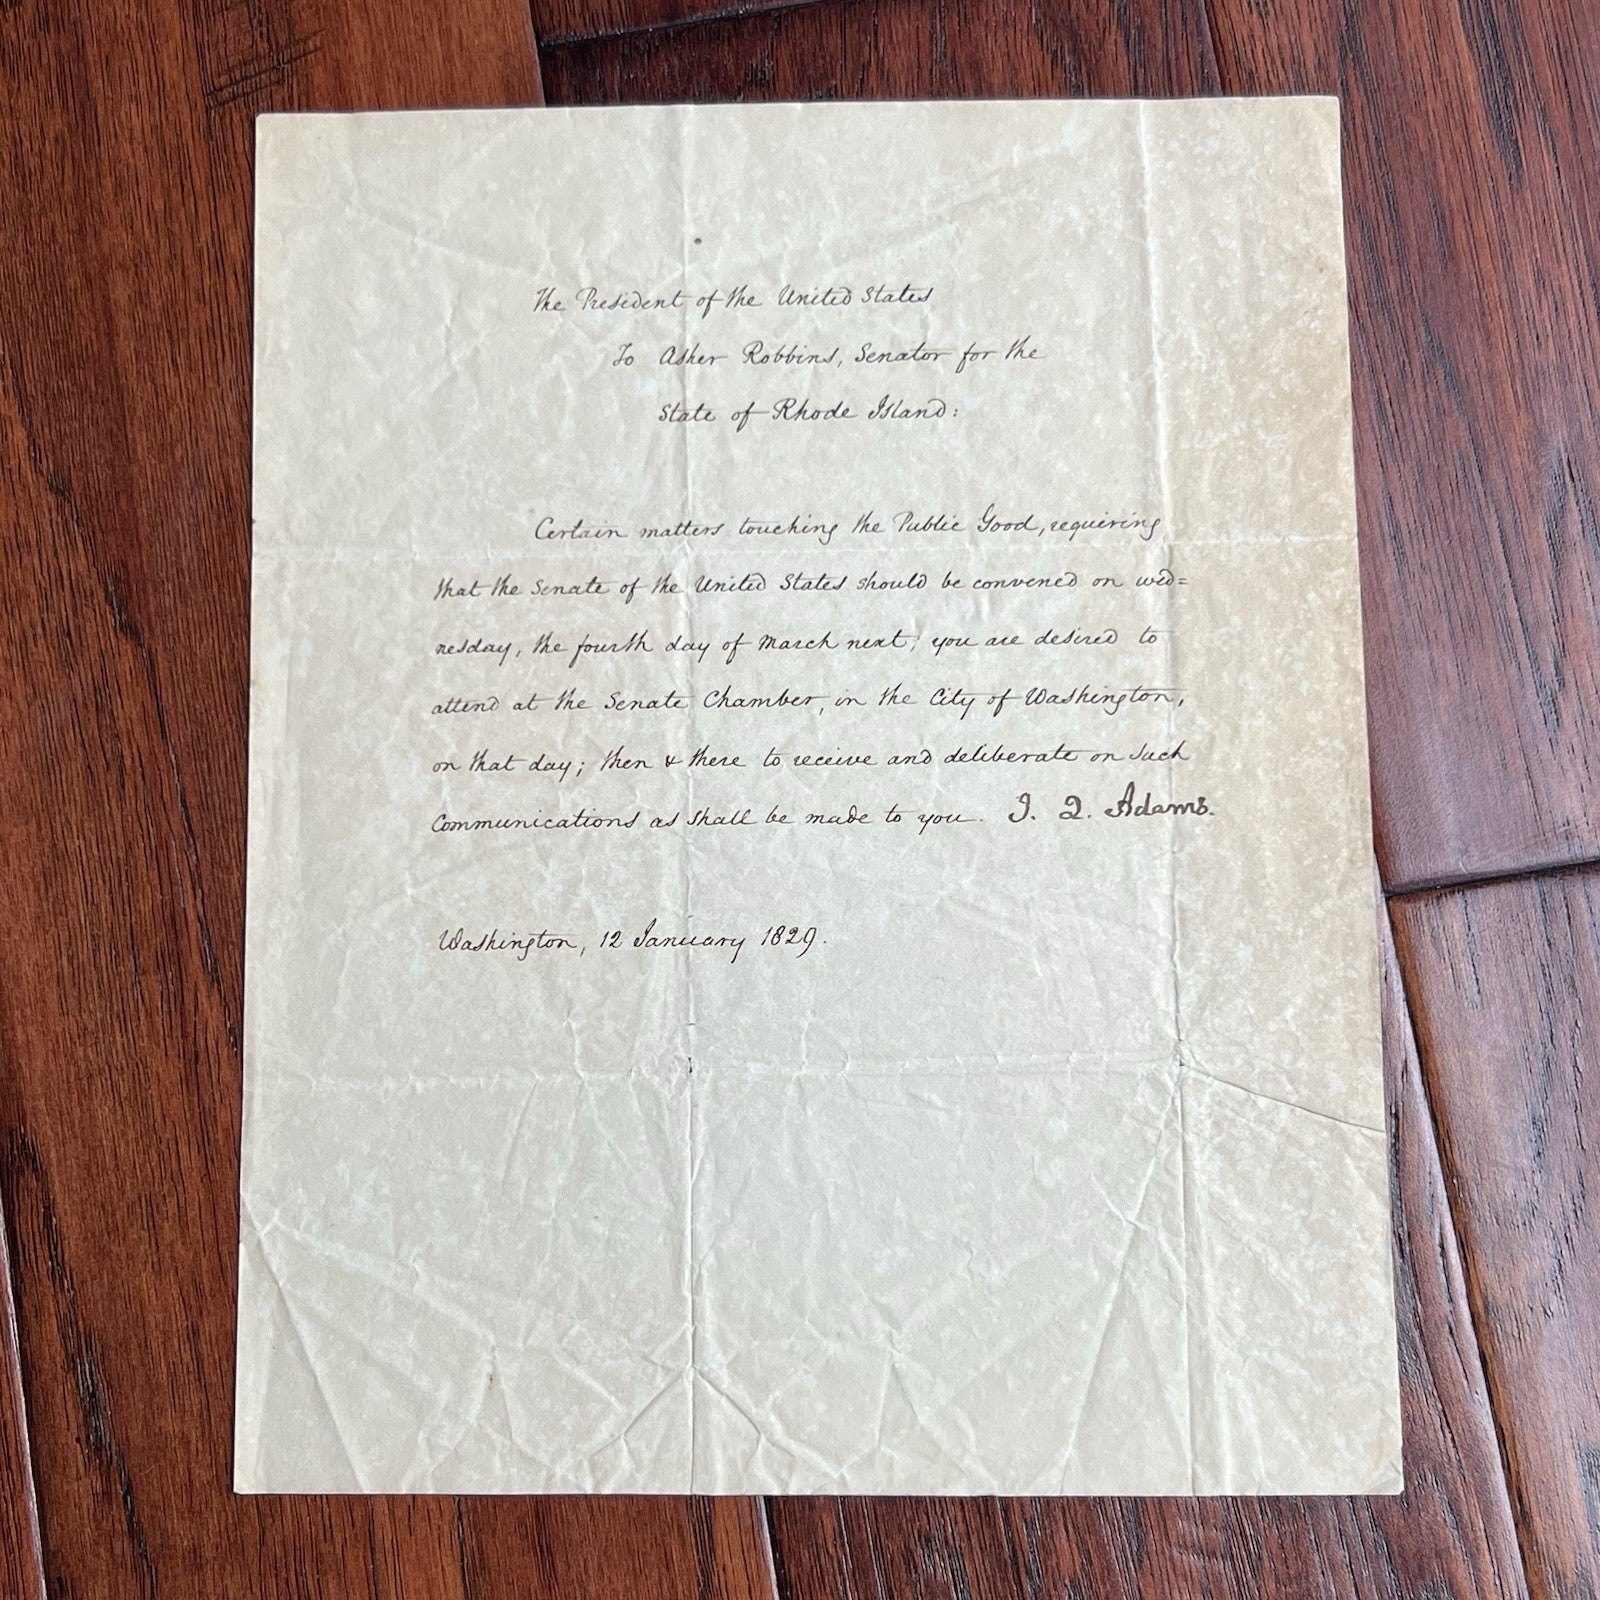 The President of the United States
To Asher Robbins, Senator for the
State of Rhode Island:
Certain matters touching the Public Good, requiring
that the Senate of the United States should be convened on wed=
nesday, the fourth day of March next; you are desired to
attend at the Senate Chamber, in the City of Washington,
on that day; then & there to receive and deliberate on such
Communications as shall be made to you. J. Q. Adams.
Washington, 12 January 1829.